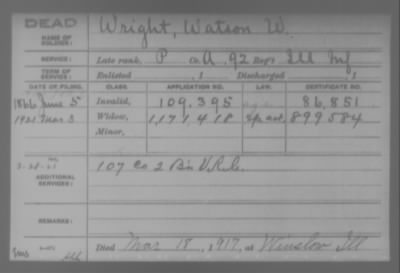 DEAD
NAME OF SOLDIER: Wright, Watson W.
SERVICE: Late rank, P Co. A, 92 Reg't Ill Inf
TERM OF SERVICE: Enlisted , 1 Discharged , 1
DATE OF FILING. CLASS. APPLICATION NO. LAW. CERTIFICATE NO.
1866 June 5 Invalid, 109,395 86,851
1921 Mar 3 Widow, 1,171,418 899584
Minor,
ADDITIONAL SERVICES: 107 Co 2 Bn V.R.C.
REMARKS:
Died Mar 18, 1917, at Winslow Ill